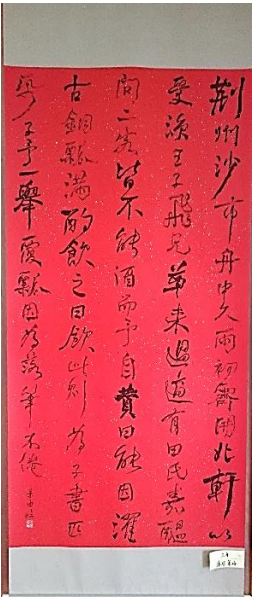 荆州沙市舟中久雨初霽開北軒以
受涼王子飛兄弟來過適有田氏嘉醖
問二客皆不能酒而予自贊曰能因濯
古銅瓢滿酌飲之曰飲此則為子書匹
予一舉覆瓢因為落筆不倦